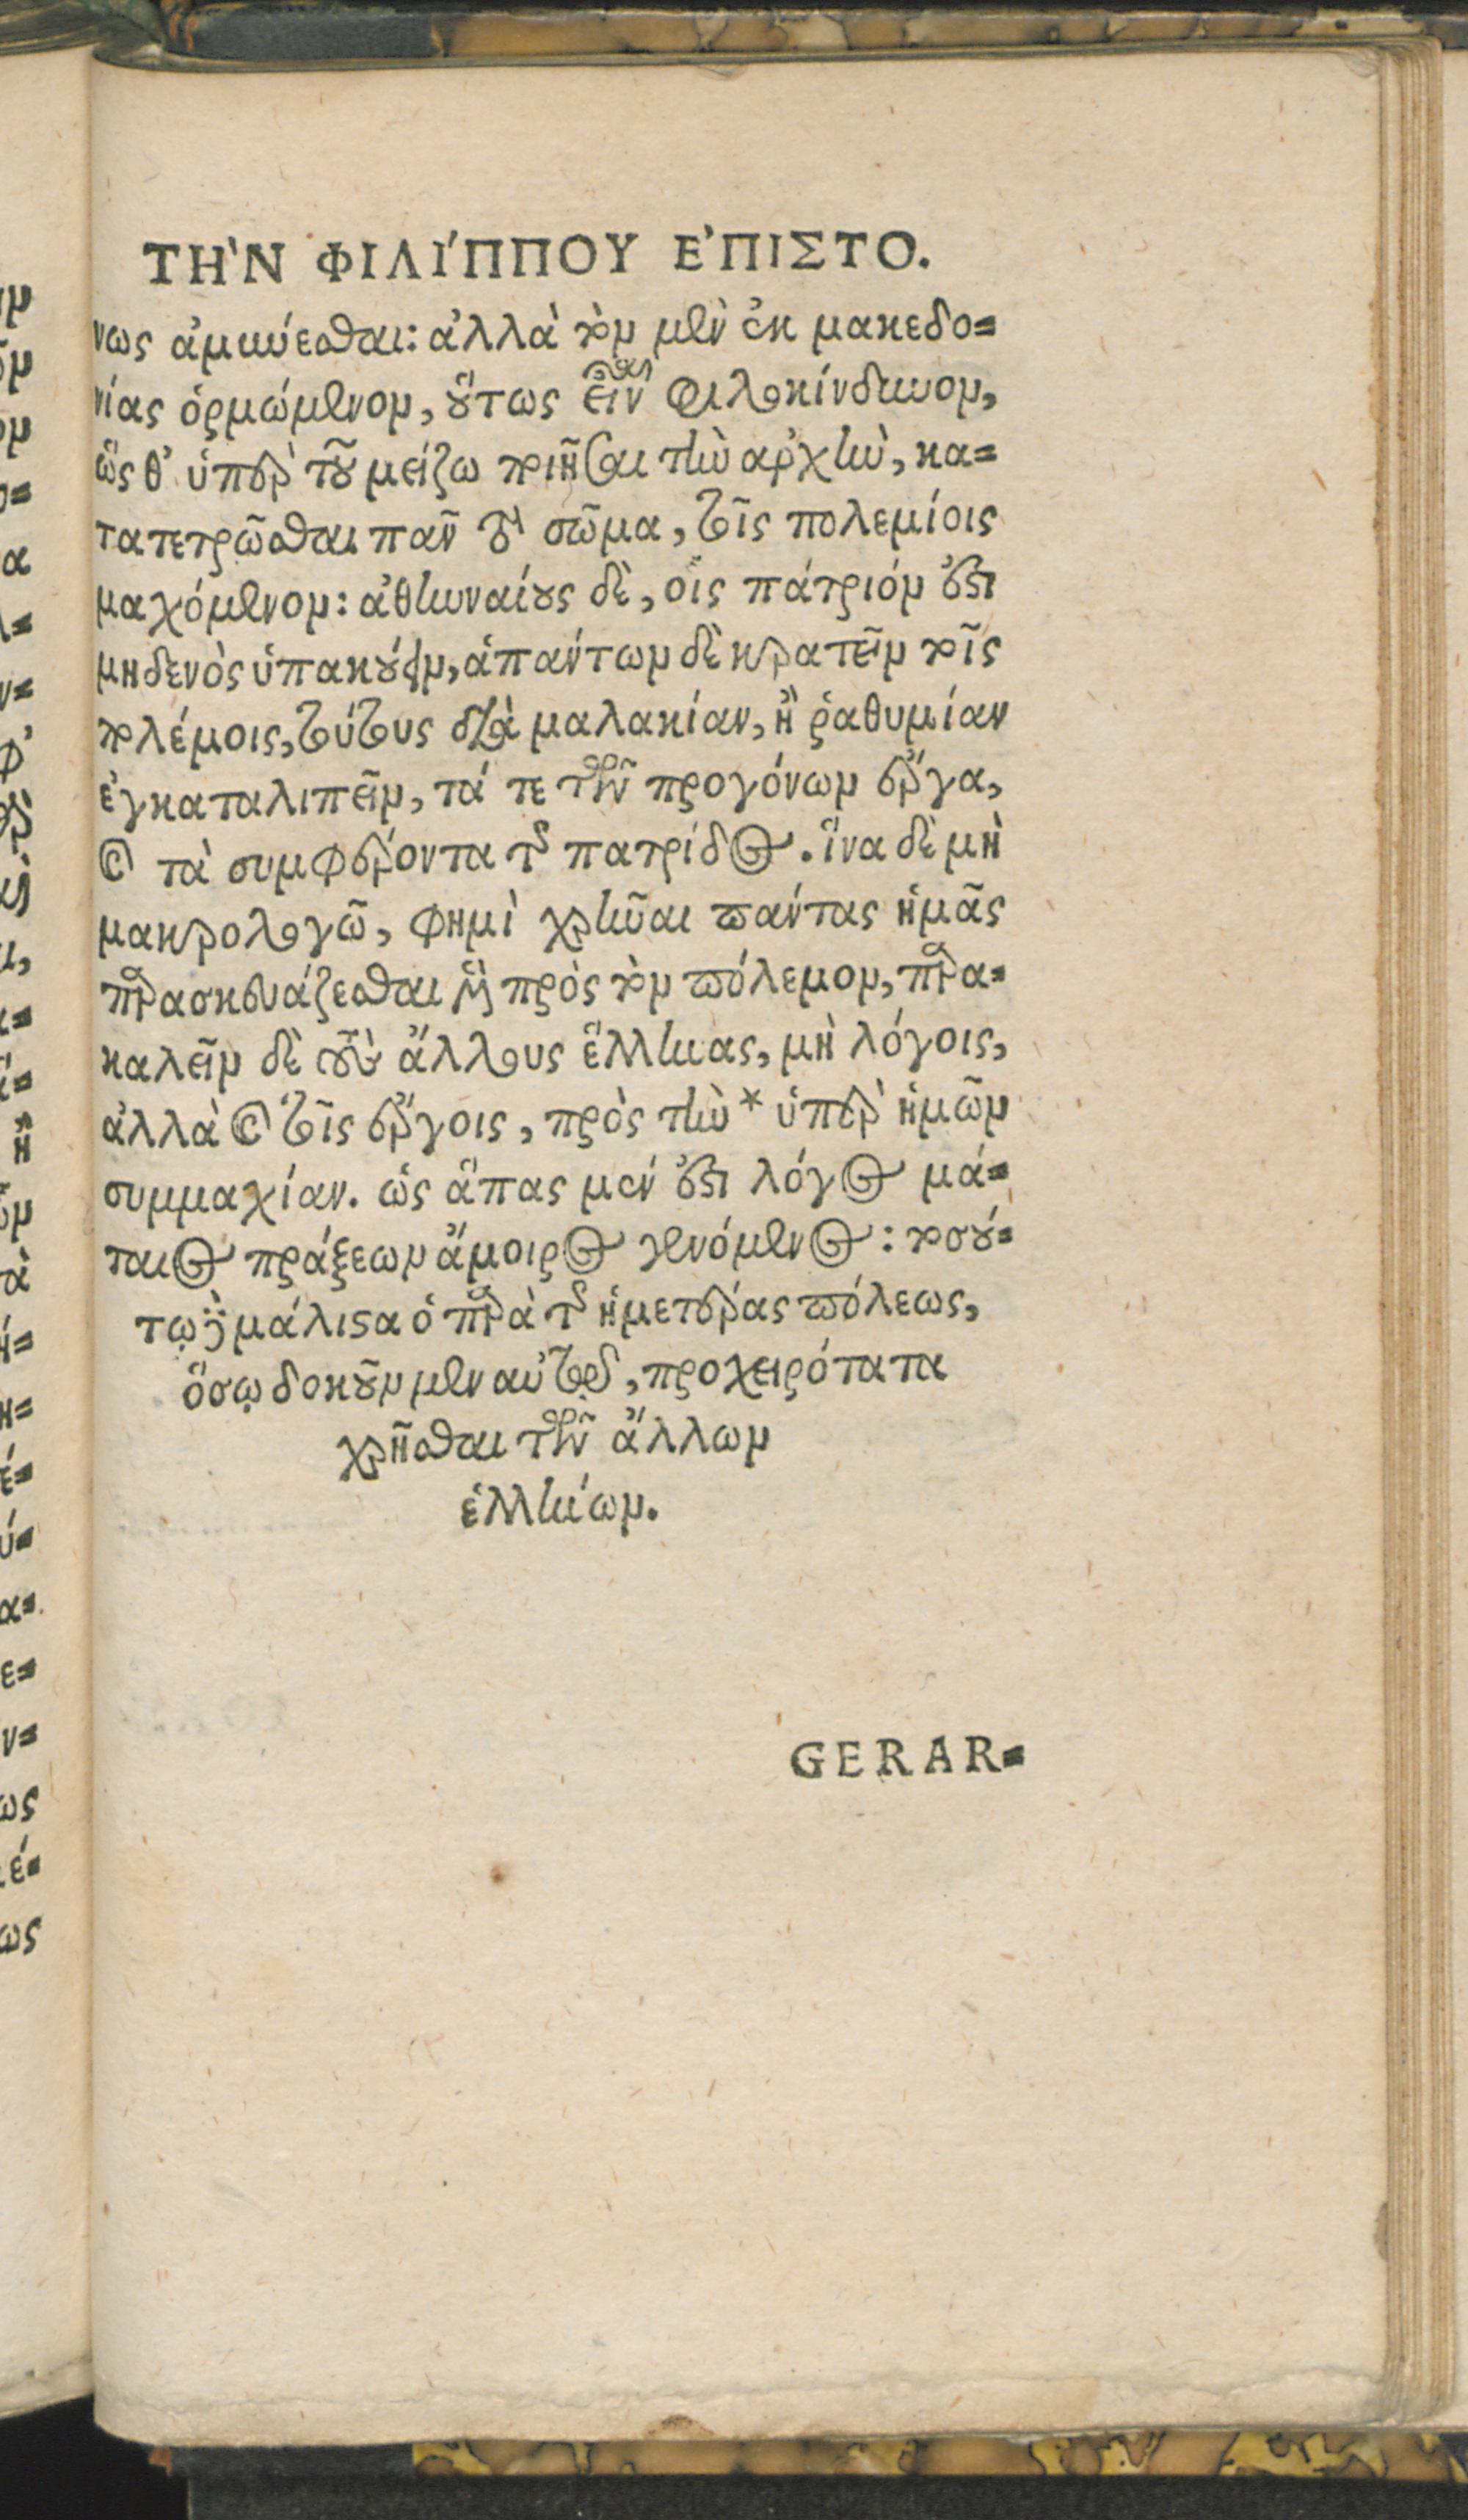 ΤῊΝ ΦΙΛΊΠΠΟΥ Ε᾿ΠΙΣΤΟ.
νως ἀμύνεσθαι: ἀλλὰ τὸν μὲν ἐκ μακεδο=
νίας ὁρμώμενον, οὕτως εἶναι φιλοκίνδυνον,
ὥς θ' ὑπὲρ τοῦ μείζω ποιῆσαι τὴν ἀρχὴν, κα=
τατετρῶσθαι πᾶν τὸ σῶμα, τοῖς πολεμίοις
μαχόμενον: ἀθηναίους δὲ, οἷς πάτριόν ἐστι
μηδενὸς ὑπακούειν, ἁπάντων δὲ κρατεῖν τοῖς
πολέμοις, τούτους διὰ μαλακίαν, ἢ ῥαθυμίαν
ἐγκαταλιπεῖν, τά τε τῶν προγόνων ἔργα,
καὶ τὰ συμφέροντα τῆς πατρίδος. ἵνα δὲ μὴ
μακρολογῶ, φημὶ χρῆναι πάντας ἡμᾶς
παρασκευάζεσθαι μὲν πρὸς τὸν πόλεμον, παρα=
καλεῖν δὲ τοὺς ἄλλους ἕλληνας, μὴ λόγοις,
ἀλλὰ καὶ τοῖς ἔργοις, πρὸς τὴν * ὑπὲρ ἡμῶν
συμμαχίαν. ὡς ἅπας μέν ἐστι λόγος μά=
ταιος πράξεων ἄμοιρος γενόμενος: τοσού=
τῳ δὲ μάλιστα ὁ παρὰ τῆς ἡμετέρας πόλεως,
ὅσῳ δοκοῦμεν αὐτῷ, προχειρότατα
χρῆσθαι τῶν ἄλλων
ἑλλήνων.
GERAR=